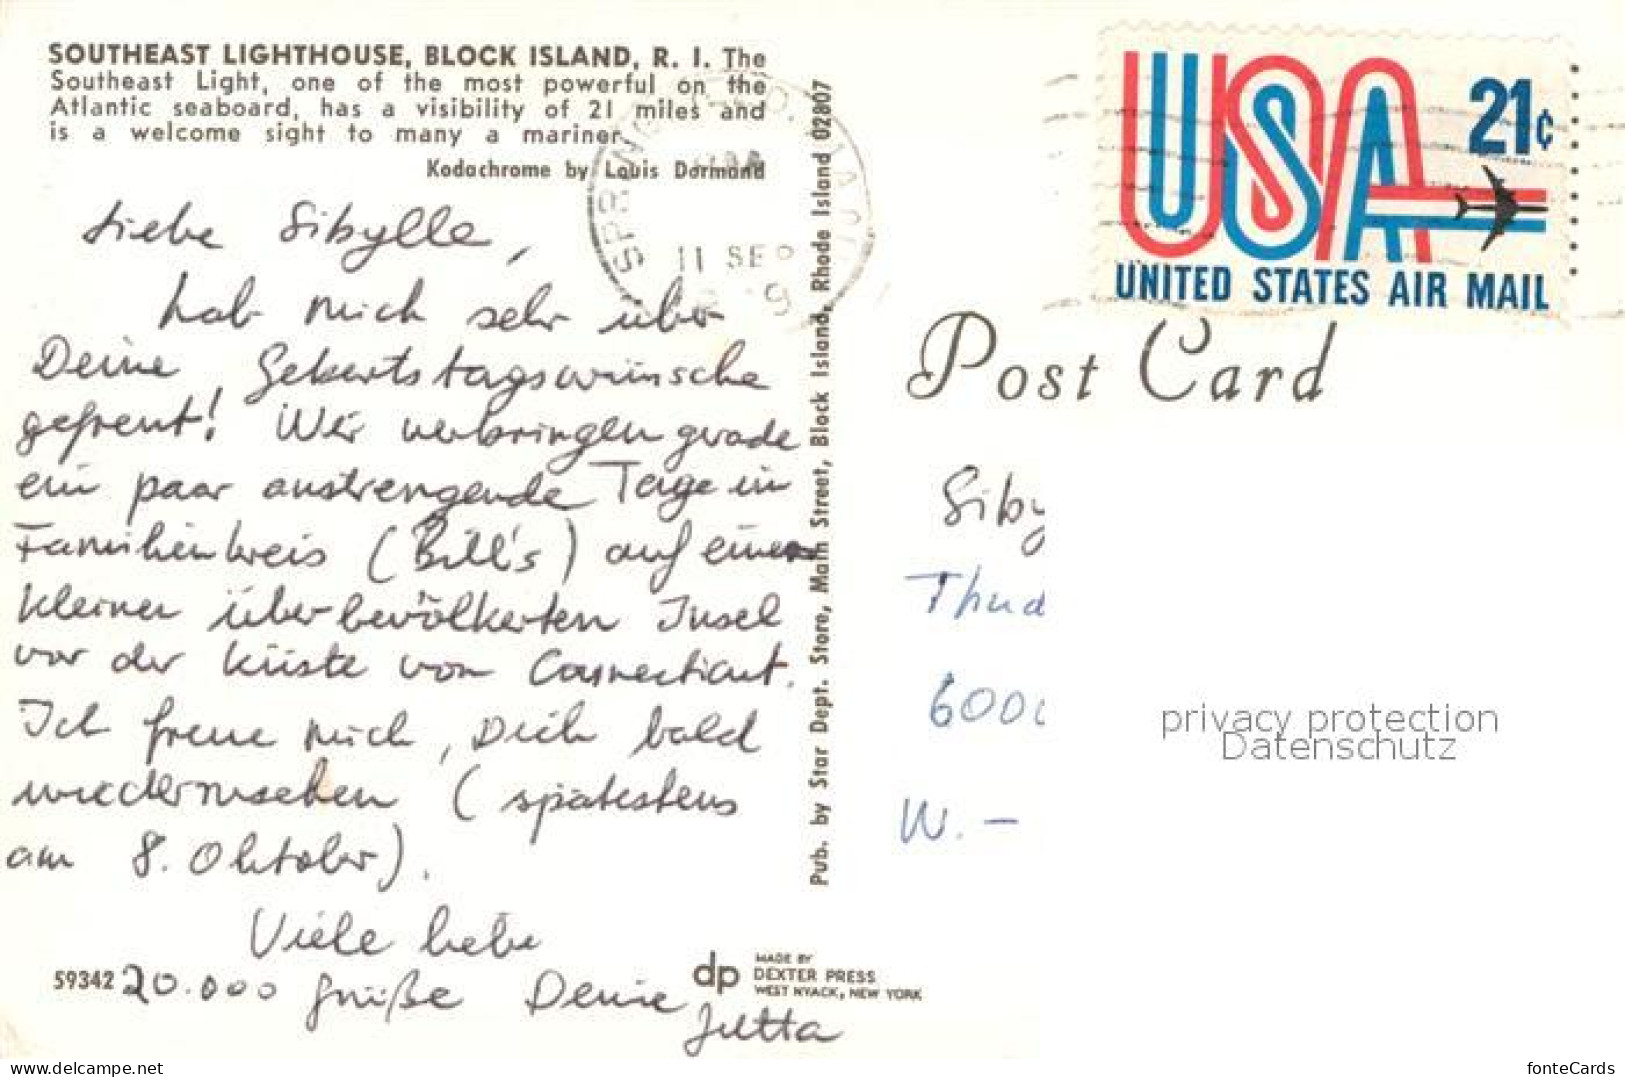 SOUTHEAST LIGHTHOUSE, BLOCK ISLAND, R. I. The
Southeast Light, one of the most powerful on the
Atlantic seaboard, has a visibility of 21 miles and
is a welcome sight to many a mariner.
Kodachrome by Louis Dormand
Liebe Sibylle,
hab mich sehr über
Deine Geburtstagswünsche
gefreut! Wir verbringen grade
ein paar anstrengende Tage im
Familienkreis (Bill's) auf einer
kleinen überbevölkerten Insel
vor der Küste von Connecticut.
Ich freue mich, Dich bald
wiederzusehen (spätestens
am 8. Oktober).
Viele liebe
20.000 Grüße Deine
Jutta
59342
dp
MADE BY
DEXTER PRESS
WEST NYACK, NEW YORK
Pub. by Star Dept. Store, Main Street, Block Island, Rhode Island 02807
11 SEP
USA
21c
UNITED STATES AIR MAIL
Post Card
Siby
Thud
600
W. -
privacy protection
Datenschutz
www.delcampe.net
fonteCards